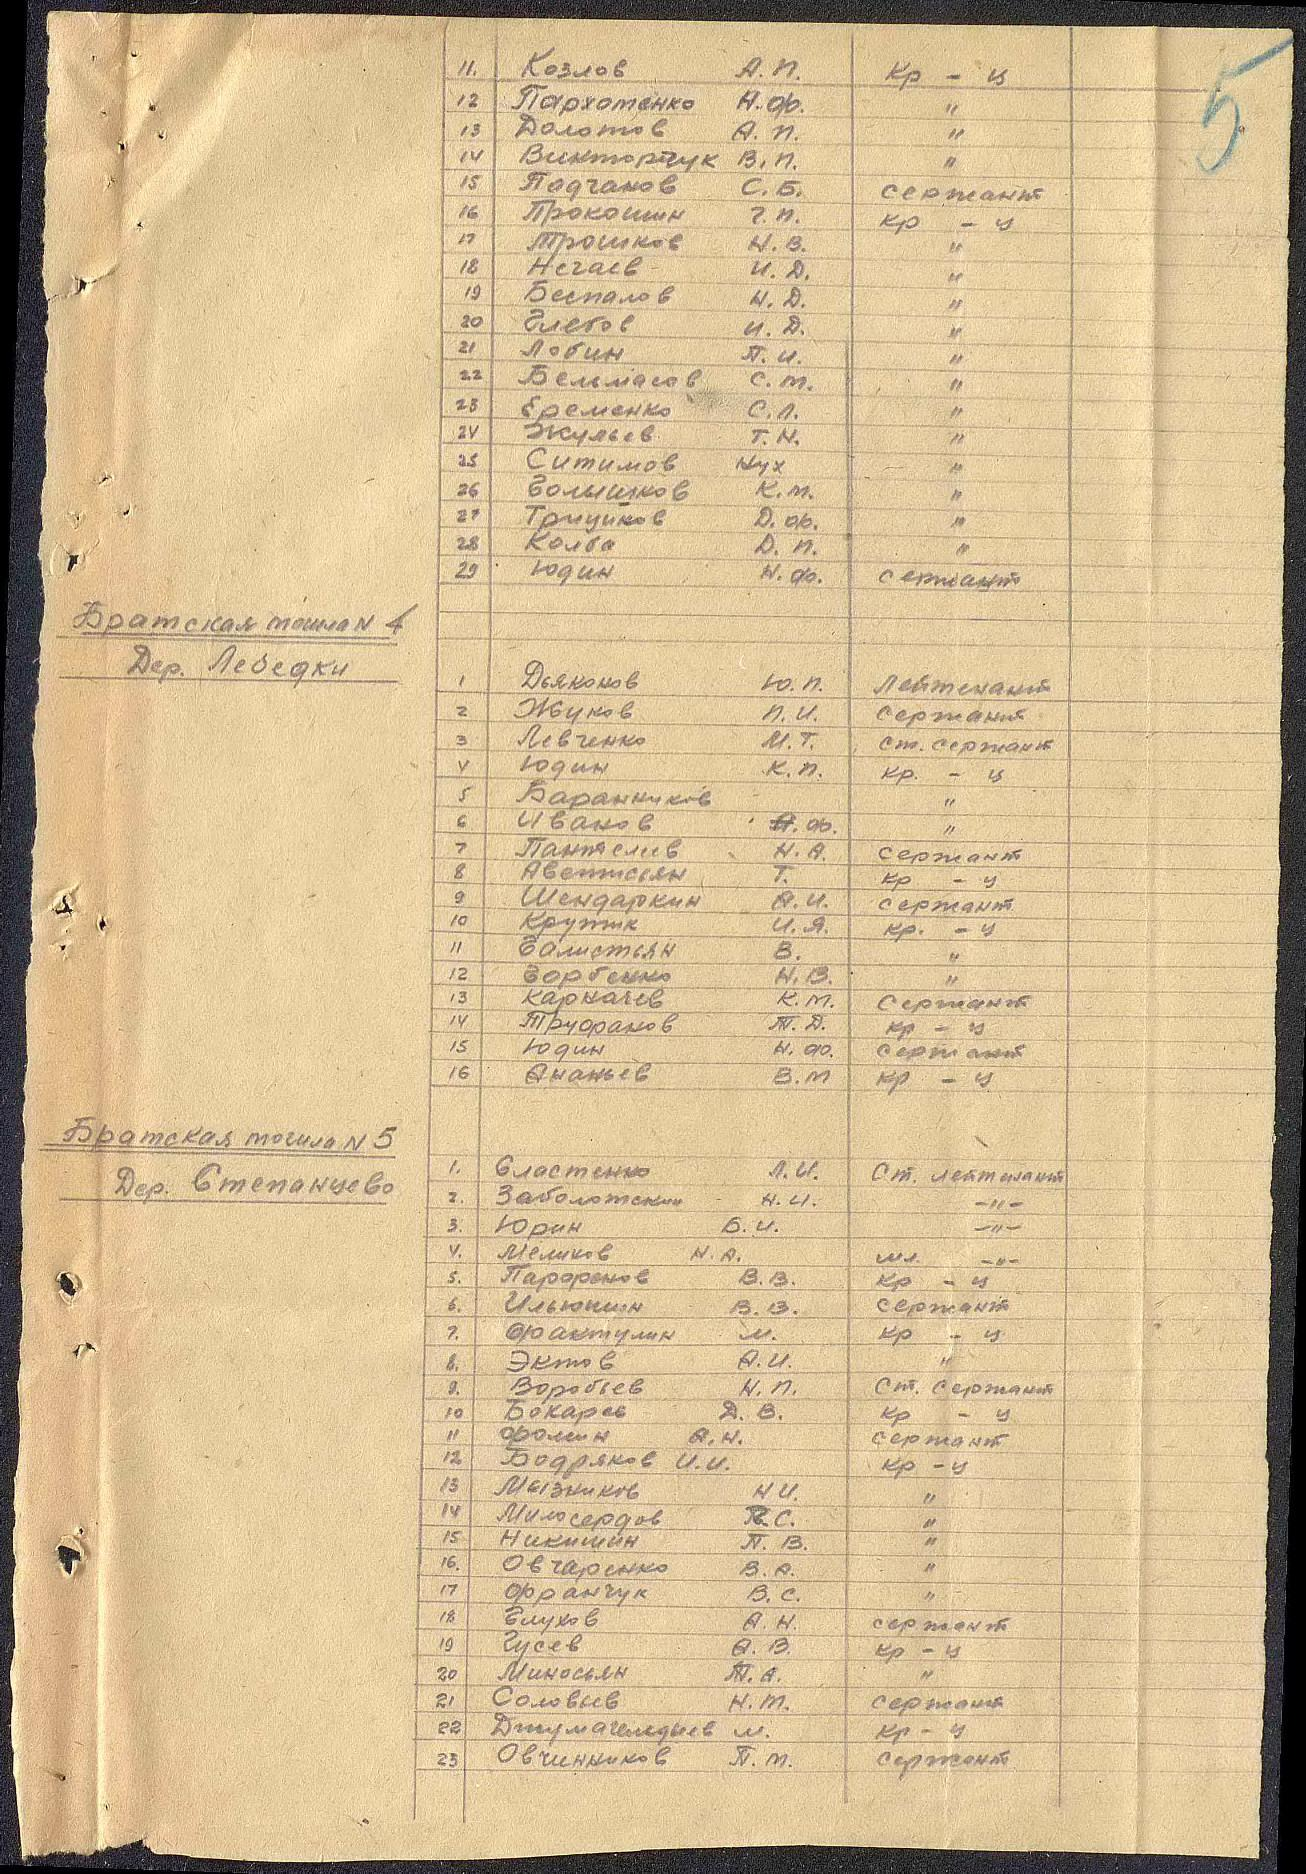 5
11. Козлов А. П. Кр - ц
12 Пархоменко А. Ф. "
13 Долотов А. П. "
14 Викторчук В. П. "
15 Падчанов С. Б. сержант
16 Прокошин Г. П. кр - ц
17 Трошков Н. В. "
18 Нечаев И. Д. "
19 Беспалов Н. Д. "
20 Глебов И. Д. "
21 Лобин П. И. "
22 С. М. "
23 Еременко С. Л. "
24 Жульев Т. Н. "
25 Ситимов Нух "
26 Голышков К. М. "
27 Тришков Д. Ф. "
28 Колба Д. П. "
29 Юдин Н. Ф. сержант
Братская могила N 4
Дер. Лебедки
1 Дьяконов Ю. П. Лейтенант
2 Жуков П. И. сержант
3 Левченко М. Т. ст. сержант
4 Юдин К. П. кр. - ц
5 Баранников "
6 Иванов А. Ф. "
7 Пантелеев Н. А. сержант
8 Аветисьян Т. кр - ц
9 Шендаркин А. И. сержант
10 Кружик И. Я. кр. - ц
11 Галистьян В. "
12 Горбенко Н. В. "
13 Карпачев К. М. сержант
14 Труфанов Т. Д. кр - ц
15 Юдин Н. Ф. сержант
16 Ананьев В. М кр - ц
Братская могила N 5
Дер. Степанцево
1. Сластенко Л. И. Ст. лейтенант
2. Заболотский Н. И. -"-
3. Юрин Б. И. -"-
4. Меликов Н. А. мл. -"-
5. Парфенов В. В. кр - ц
6. Ильюшин В. В. сержант
7. Фактулин М. кр - ц
8. Эктов А. И. "
9. Воробьев Н. П. Ст. сержант
10 Бокарев Д. В. кр - ц
11 Фомин А. Н. сержант
12 Бодряков И. И. кр - ц
13 Мызников Н И. "
14 Милосердов С. "
15 Никишин П. В. "
16. Овчаренко В. А. "
17 Франчук В. С. "
18 Глухов А. Н. сержант
19 Гусев А. В. кр - ц
20 Миносьян Т. А. "
21 Соловьев Н. М. сержант
22 Джумагелдыев М. кр - ц
23 Овчинников П. М. сержант